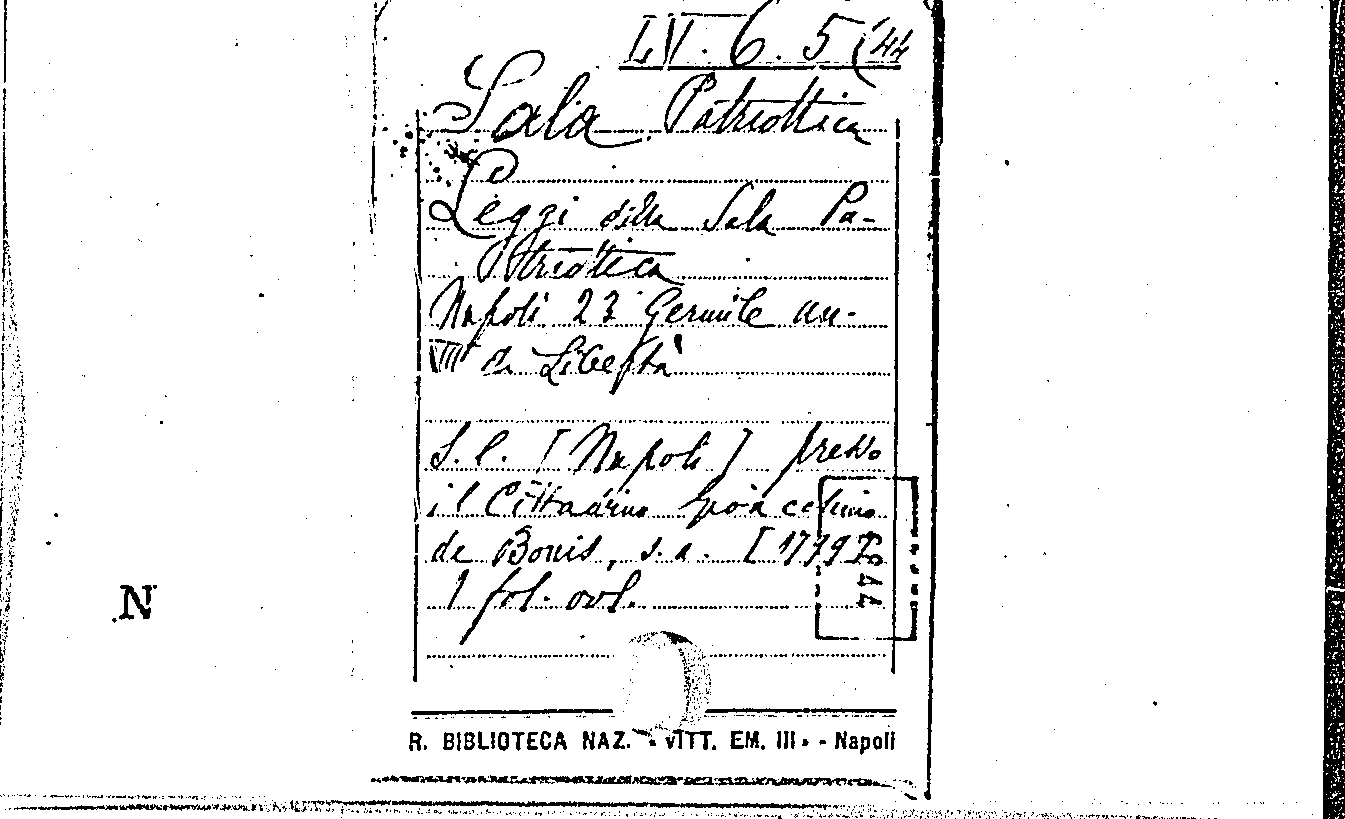 LV. 6. 5 (44
Sala Patriottica
Leggi della Sala Pa-
triottica
Napoli 23 Germile an-
VII di Libertà
S. l. [Napoli] presso
il Cittadino
de Bonis, s. a. [179
1 fol. vol.
N
R. BIBLIOTECA NAZ. - VITT. EM. III. - Napoli